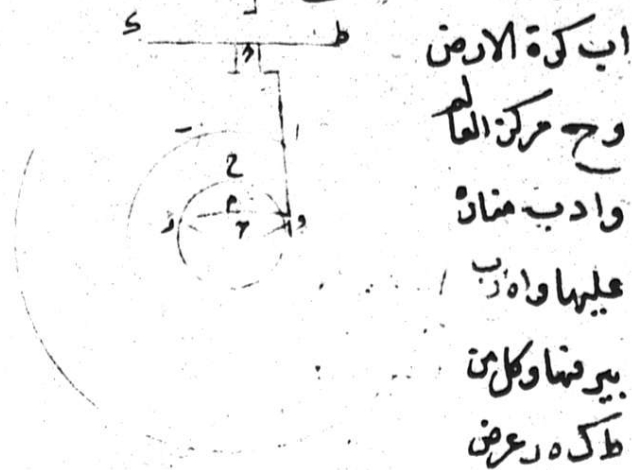 اب كرة الارض
وح مركز العالم
وا دب منارة
عليها واه رب
بير فيها وكل من
ط ك ه ر عرض